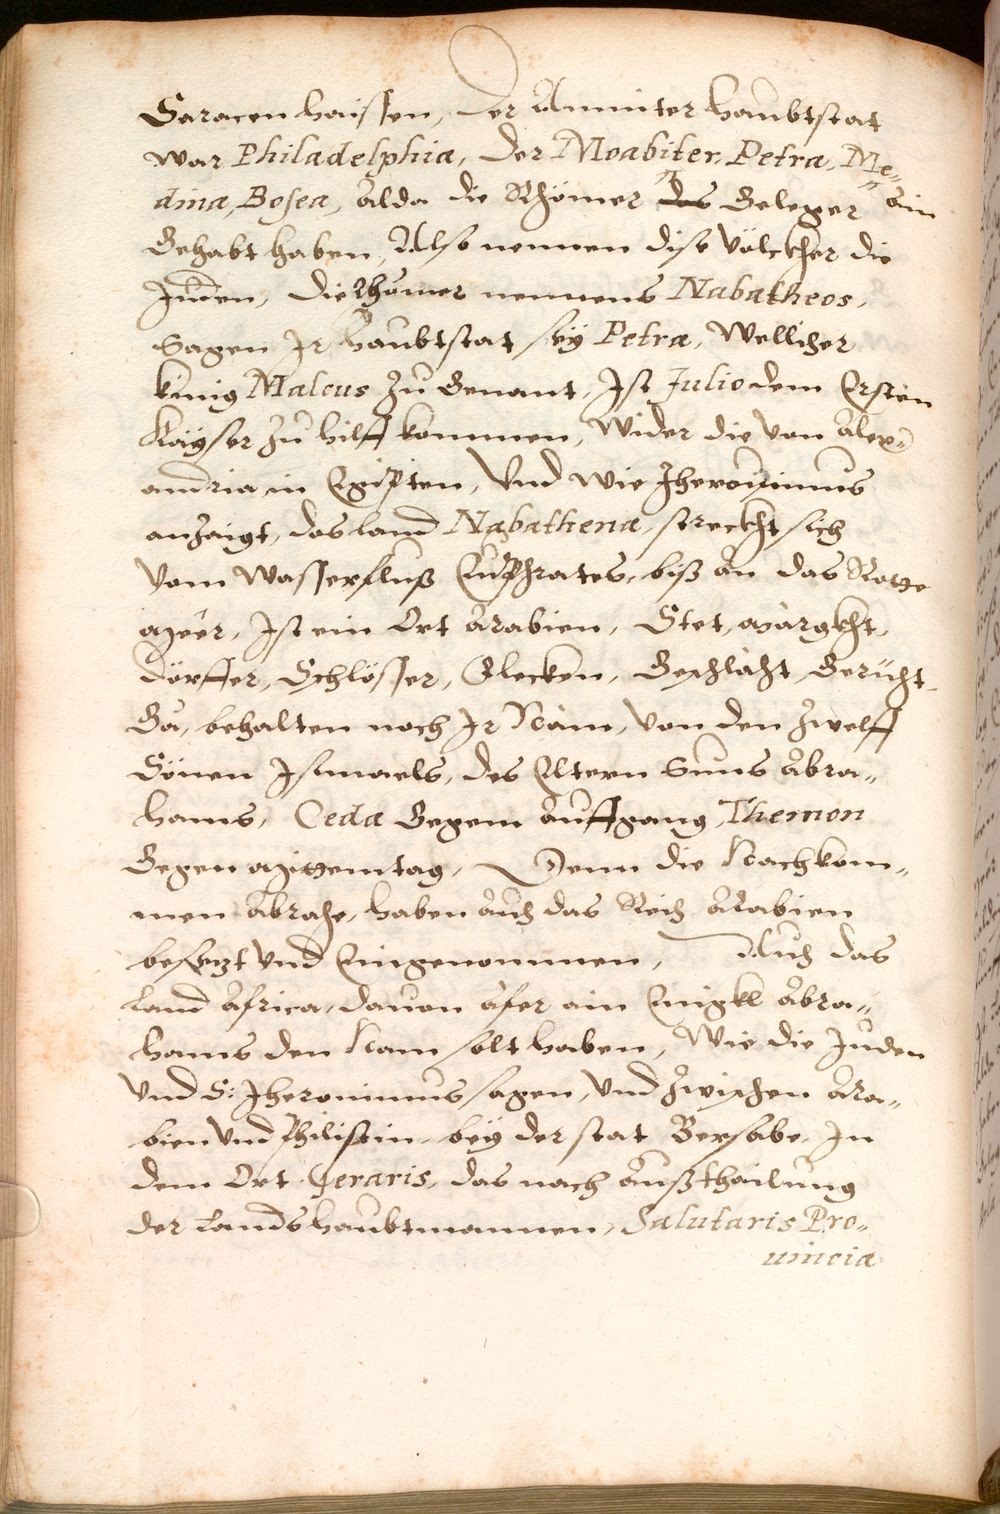 Saracen haissen, der Amniter haubtstat
war Philadelphia, der Moabiter, Petra, Me¬
dina, Bosea, Alda die Rhömer das Geleger ain
Gehabt haben, Also nennen dise völckher die
Juden, die Rhömer nennens Nabatheos,
Sagen Jr haubtstat sey Petra, Wellicher
künig Malcus zu Genant, Ist Julio dem Ersten
Kayser zu hilff kommen, Wider die von Alex¬
andria in Egipten, Vnd wie Jheronimus
anzaigt, das land Nabathena, streckht sich
Vom Wasserfluß Euphrates, biß an das Rotte
Meer, Ist ein Ort Arabien, Stet, Märgkht,
Dörffer, Schlösser, Flecken, Geschlächt, Gericht,
Gä, behalten noch Jr Nam, von den Zwelff
Sönen Ismaels, des Eltern Suns Abra¬
hams, Ceda Gegem Auffgang, Themon
Gegen Mittemtag, Denn die Nachkom¬
men Abrahe, haben Auch das Reich Arabien
besetzt vnd Eingenommen, Auch das
Land Africa, dauon Afer ain Enigkl Abra¬
hams den Nam solt haben, Wie die Juden
Vnd S: Jheronimus sagen, Vnd Zwischen Ara¬
bien Vnd Philistin, bey der stat Bersabe, In
dem Ort Geraris, das nach Außthailung
der Landshaubtmannen, Salutaris Pro¬
uincia